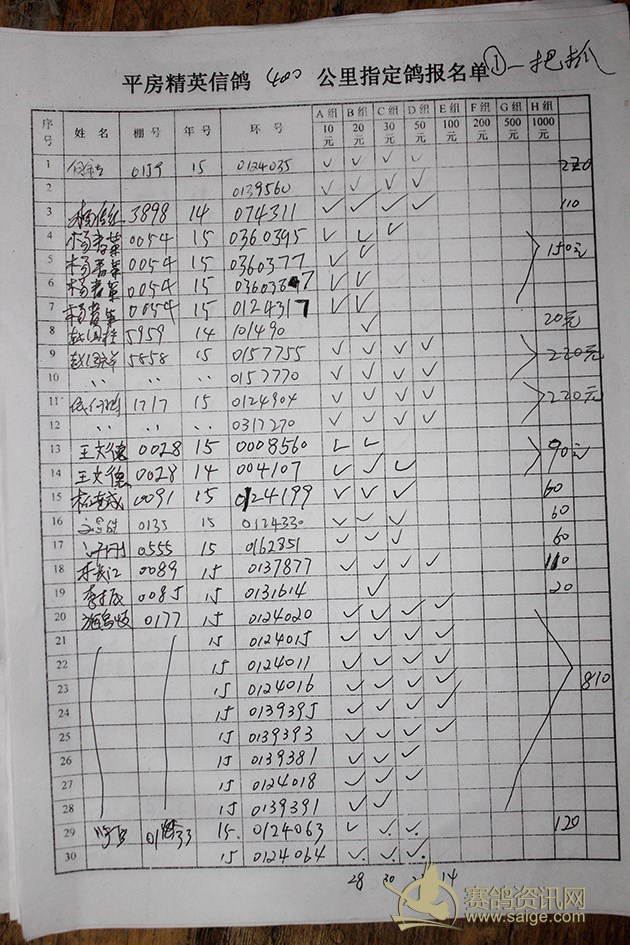 平房精英信鸽 400 公里指定鸽报名单 ①一把抓
序号 姓名 棚号 年号 环号 A组10元 B组20元 C组30元 D组50元 E组100元 F组200元 G组500元 H组1000元
1 0159 15 0124035 ✓ ✓ ✓ ✓ 220
2 0139560 ✓ ✓ ✓ ✓
3 3898 14 074311 ✓ ✓ ✓ ✓ 110
4 0054 15 0360395 ✓ ✓ ✓
5 0054 15 0360377 ✓ ✓ 150元
6 0054 15 ✓ ✓
7 0054 15 0124317 ✓ ✓
8 5959 14 101490 ✓ 20元
9 5858 15 0157755 ✓ ✓ ✓ ✓ 220元
10 〃 〃 0157770 ✓ ✓ ✓ ✓
11 1717 15 0124904 ✓ ✓ ✓ ✓ 220元
12 〃 〃 0317270 ✓ ✓ ✓ ✓
13 王文德 0028 15 0008560 ✓ ✓ 90元
14 王文德 0028 14 004107 ✓ ✓ ✓
15 0091 15 0124199 ✓ ✓ ✓ 60
16 0135 15 0124330 ✓ ✓ ✓ 60
17 0555 15 0162851 ✓ ✓ ✓ 60
18 0089 15 0137877 ✓ ✓ ✓ ✓ 110
19 0085 15 0131614 ✓ 20
20 0177 15 0124020 ✓ ✓ ✓ ✓
21 15 0124015 ✓ ✓ ✓ ✓
22 15 0124011 ✓ ✓ ✓ ✓
23 15 0124016 ✓ ✓ ✓ ✓ 810
24 15 0139395 ✓ ✓ ✓ ✓
25 15 0139393 ✓ ✓ ✓ ✓
26 15 0139381 ✓ ✓ ✓
27 15 0124018 ✓ ✓ ✓
28 15 0139391 ✓ ✓
29 15 0124063 ✓ ✓ ✓ 120
30 15 0124064 ✓ ✓ ✓
28 30 14
赛鸽资讯网
www.saige.com